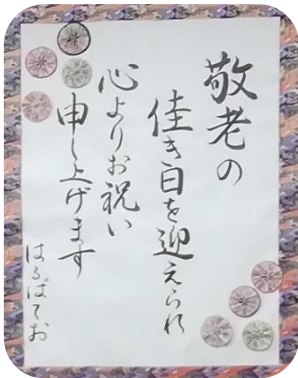 敬老の
佳き日を迎えられ
心よりお祝い
申し上げます
はるぱてお